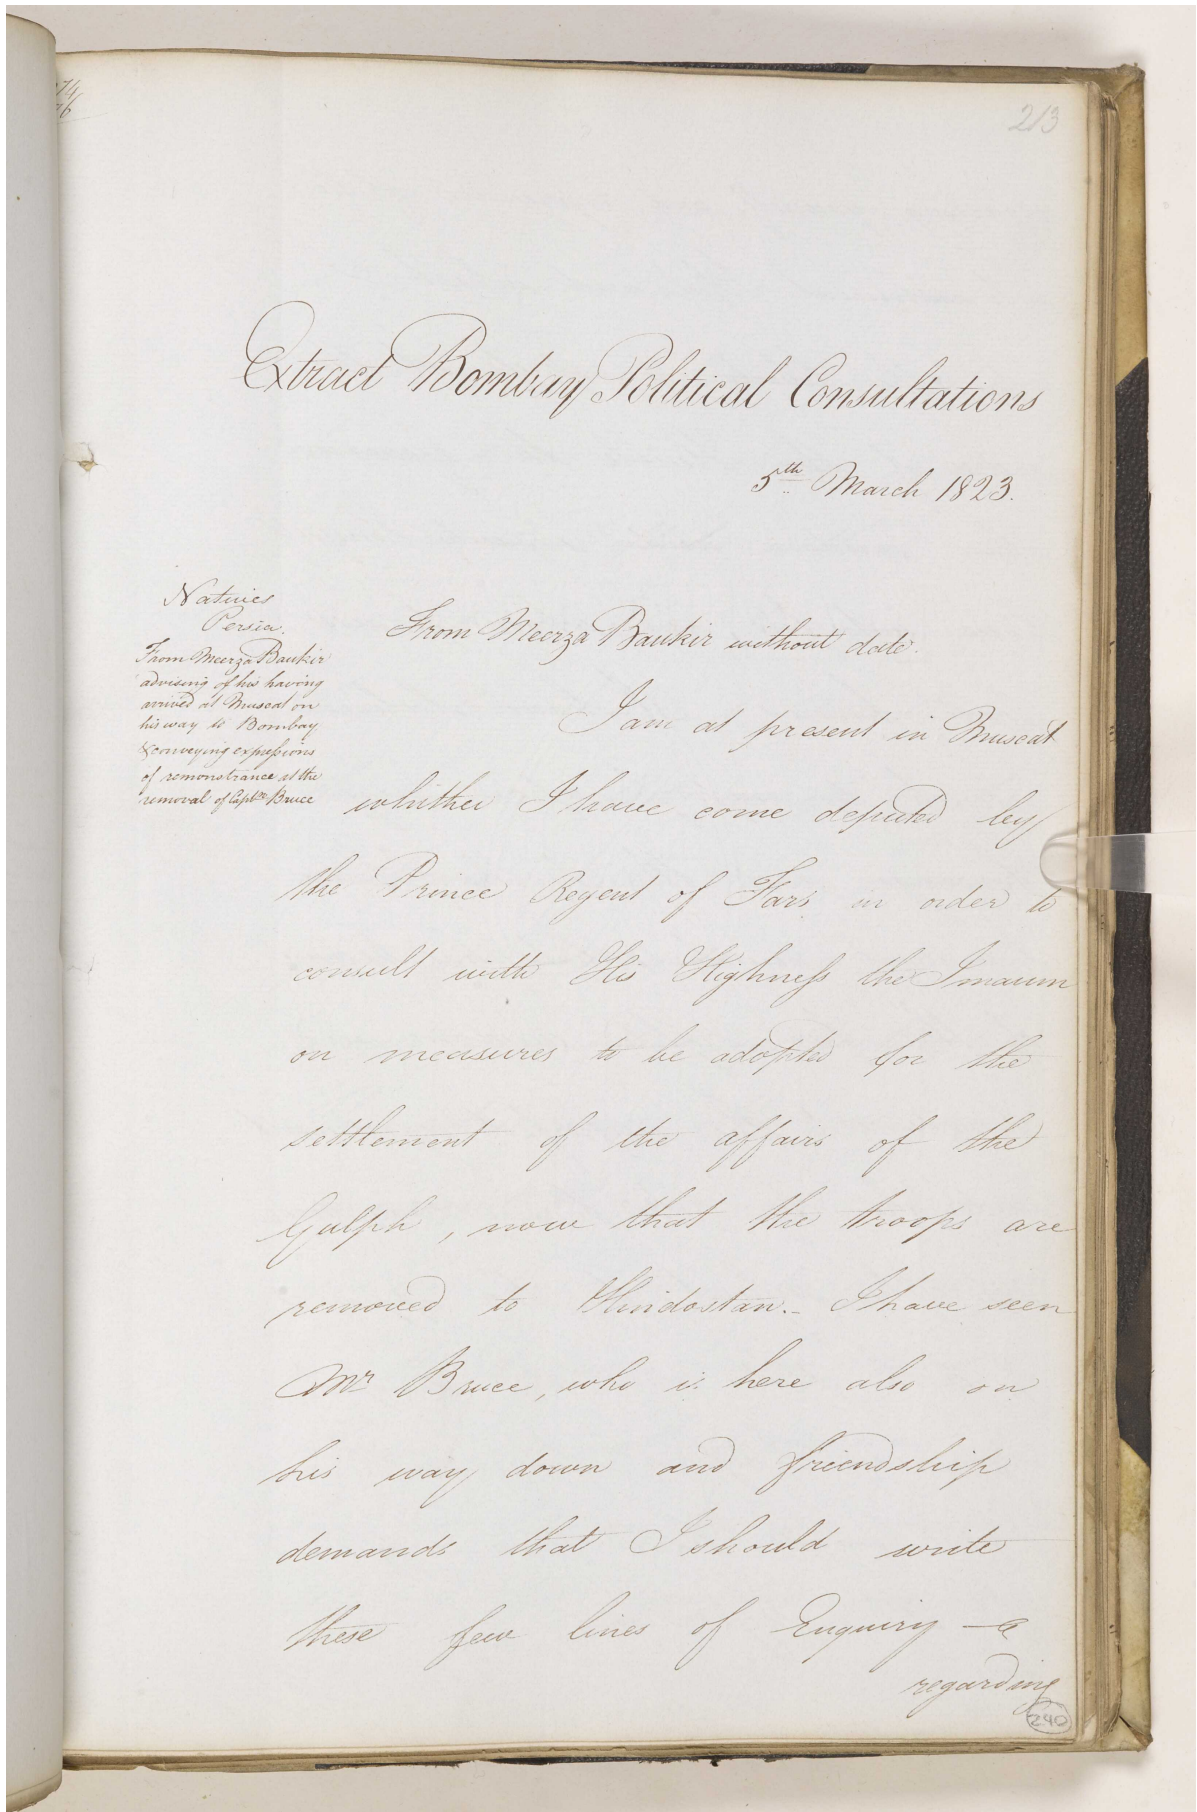 213
Extract Bombay Political Consultations
5th March 1823.
Natives
Persia.
From Meerza Baukir
advising of his having
arrived at Muscat on
his way to Bombay
& conveying expressions
of remonstrance at the
removal of Captn. Bruce
From Meerza Baukir without date.
I am at present in Muscat
whither I have come deputed by
the Prince Regent of Fars in order to
consult with His Highness the Imaum
on measures to be adopted for the
settlement of the affairs of the
Gulph, now that the troops are
removed to Hindostan. - I have seen
Mr. Bruce, who is here also on
his way down and friendship
demands that I should write
these few lines of Enquiry -
regarding
240